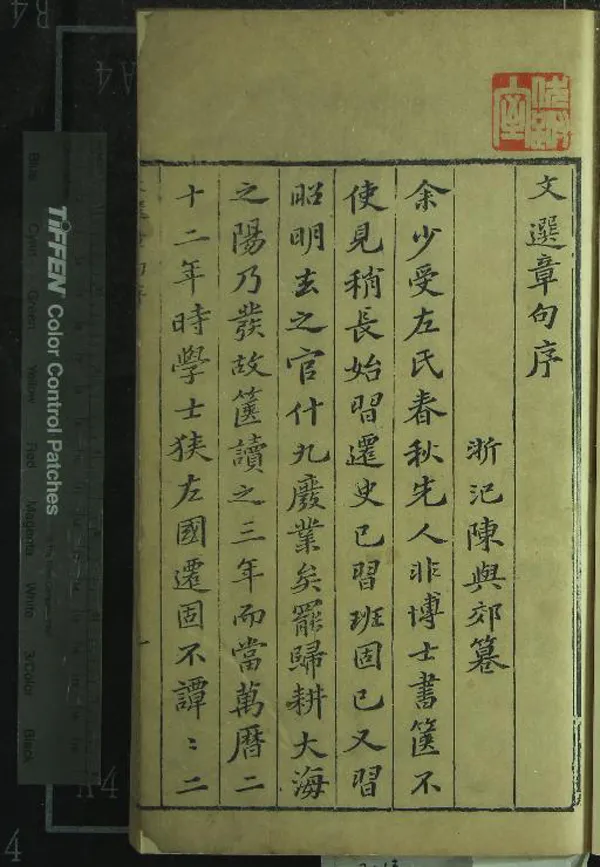 文選章句序
浙汜陳與郊篹
余少受左氏春秋先人非博士書篋不
使見稍長始習遷史已習班固已又習
昭明玄之官什九廢業矣罷歸耕大海
之陽乃發故篋讀之三年而當萬曆二
十二年時學士狹左國遷固不譚〻二
一
TIFFEN Color Control Patches
Blue
Cyan
Green
Yellow
Red
Magenta
White
3/Color
Black